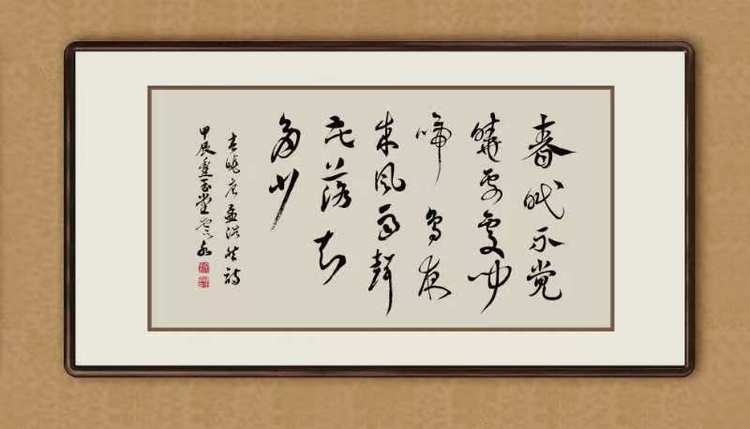 春眠不觉
晓处处闻
啼鸟夜
来风雨声
花落知
多少
春晓唐孟浩然诗
甲辰